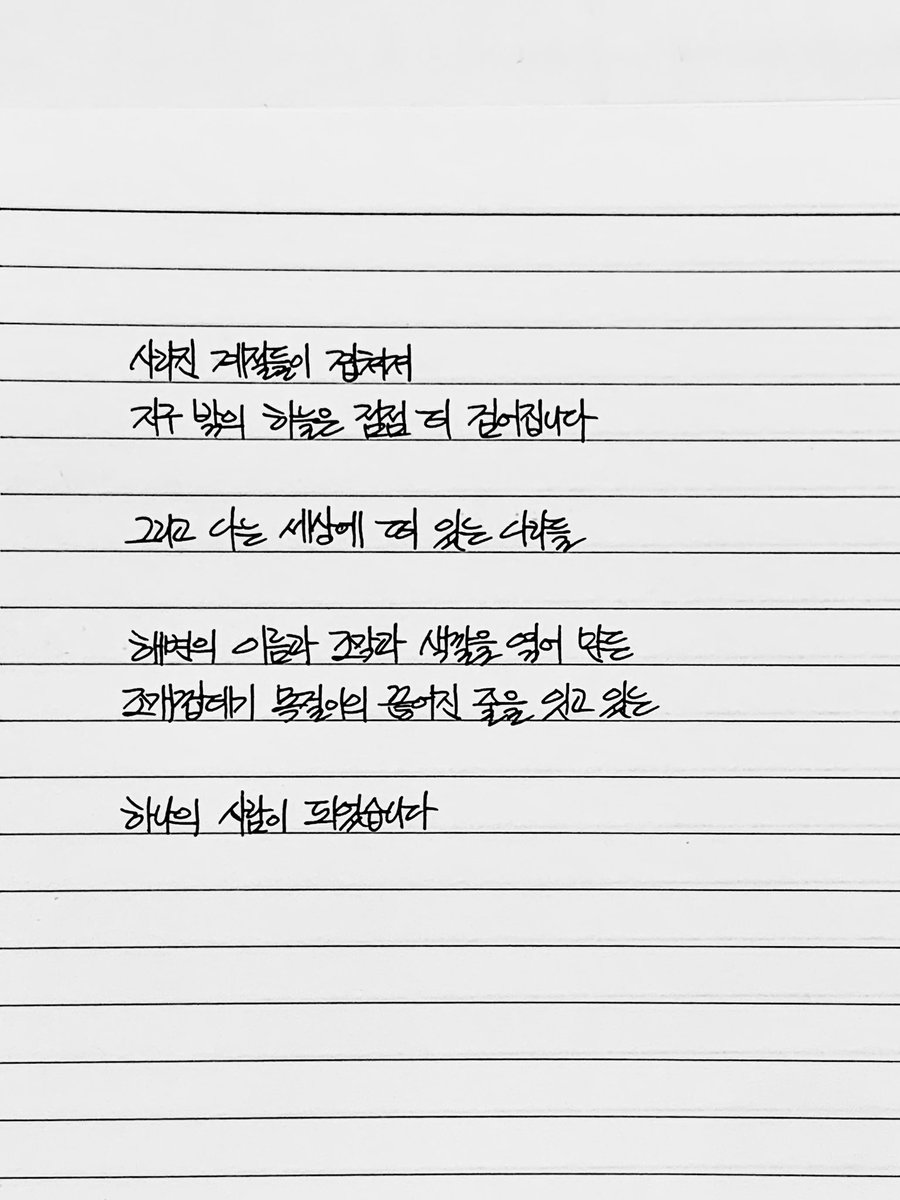 사라진 계절들이 겹쳐져
지구 밖의 하늘은 점점 더 짙어집니다
그리고 나는 세상에 떠 있는 나라들
해변의 이름과 조각과 색깔을 엮어 만든
조개껍데기 목걸이의 끊어진 줄을 잇고 있는
하나의 사람이 되었습니다